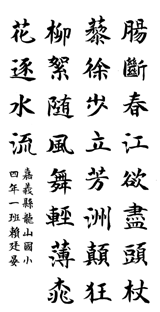 腸斷春江欲盡頭杖
藜徐步立芳洲顛狂
柳絮随風舞輕薄桃
花逐水流
嘉義縣龍山國小
四年一班賴廷晏